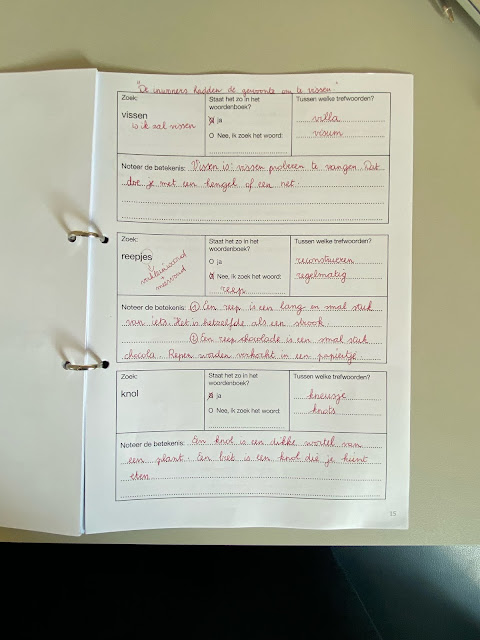 "De inwoners hadden de gewoonte om te vissen"
Zoek:
vissen
ik zal vissen
Staat het zo in het woordenboek?
ja
O Nee, ik zoek het woord:
Tussen welke trefwoorden?
villa
visum
Noteer de betekenis: Vissen is: vissen proberen te vangen. Dat
doe je met een hengel of een net.
Zoek:
reepjes
verkleinwoord
meervoud
Staat het zo in het woordenboek?
O ja
Nee, ik zoek het woord:
reep
Tussen welke trefwoorden?
reconstrueren
regelmatig
Noteer de betekenis: ① Een reep is een lang en smal stuk
van iets. Het is hetzelfde als een strook.
② Een reep chocolade is een smal stuk
chocola. Repen worden verkocht in een papiertje.
Zoek:
knol
Staat het zo in het woordenboek?
ja
O Nee, ik zoek het woord:
Tussen welke trefwoorden?
kneusje
knots
Noteer de betekenis: Een knol is een dikke wortel van
een plant. Een biet is een knol die je kunt
eten
15